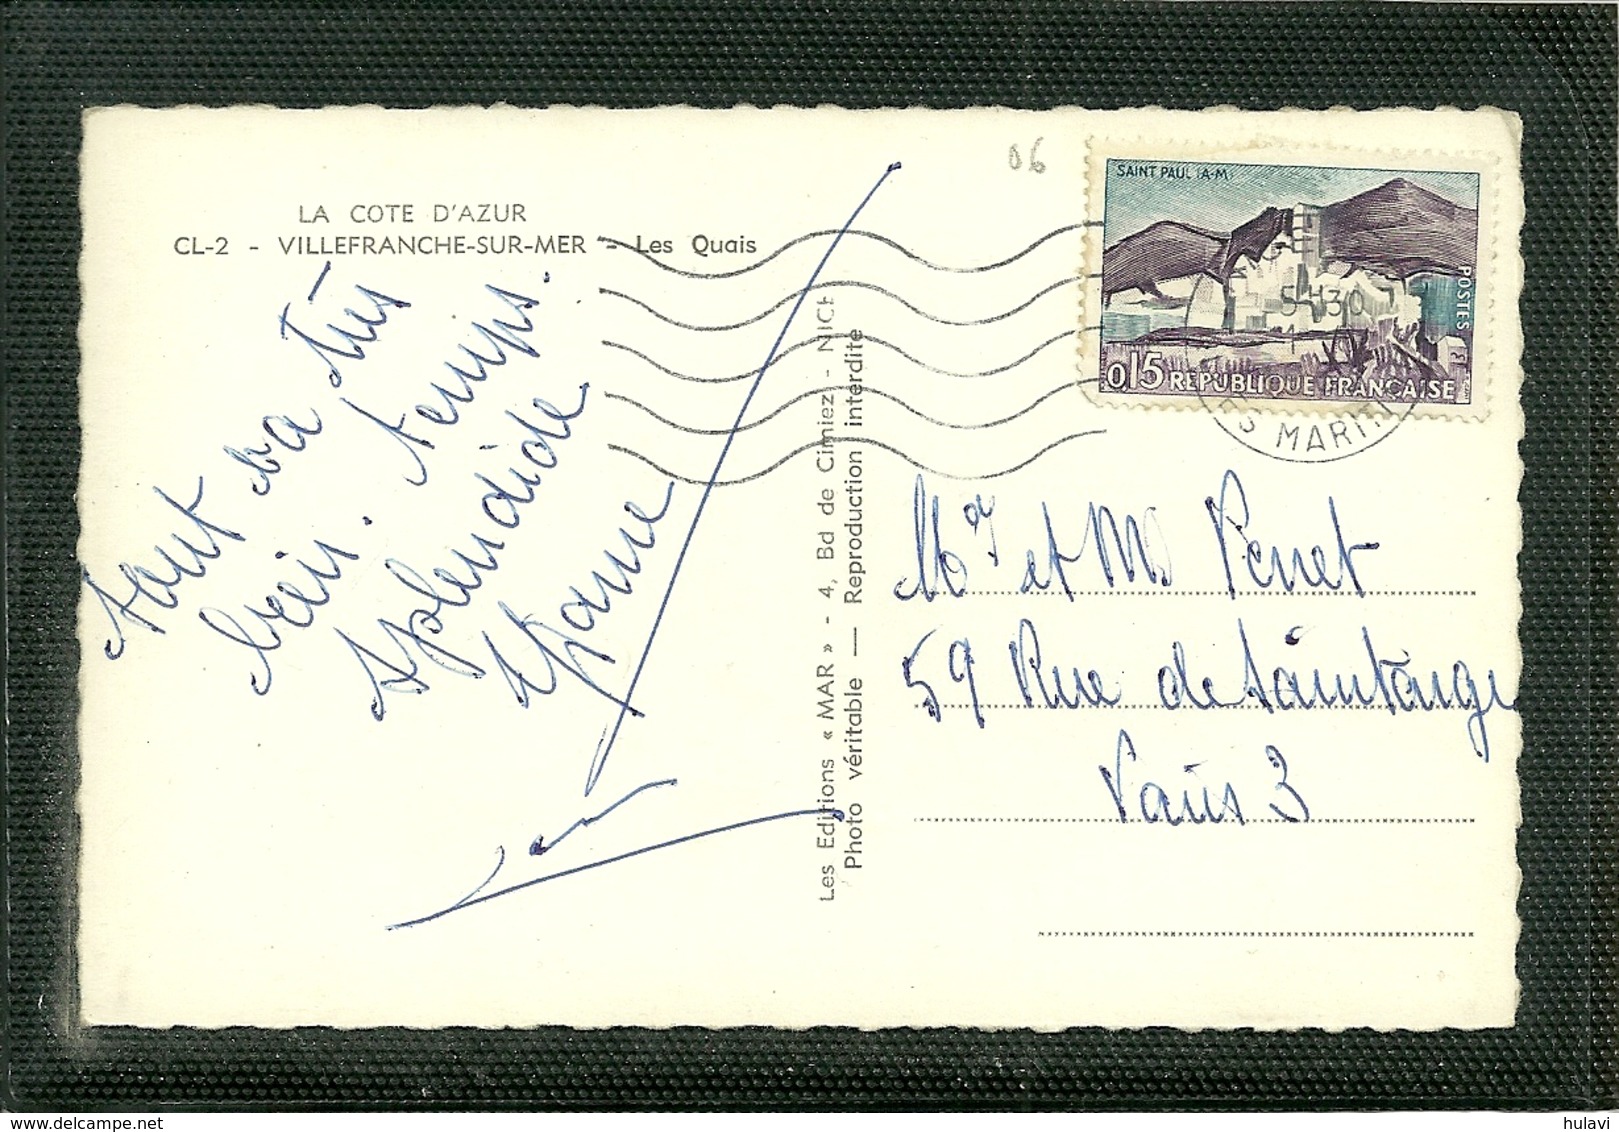 06
LA COTE D'AZUR
CL-2 - VILLEFRANCHE-SUR-MER - Les Quais
SAINT PAUL (A-M)
POSTES
0,15 REPUBLIQUE FRANÇAISE
5H30
ES MARIT
tout va très
bien. temps.
splendide
Les Editions « MAR » - 4, Bd de Cimiez - NICE
Photo véritable — Reproduction interdite
Mr et Me Perret
59 Rue de Saintonge
Paris 3
hulavi
delcampe.net